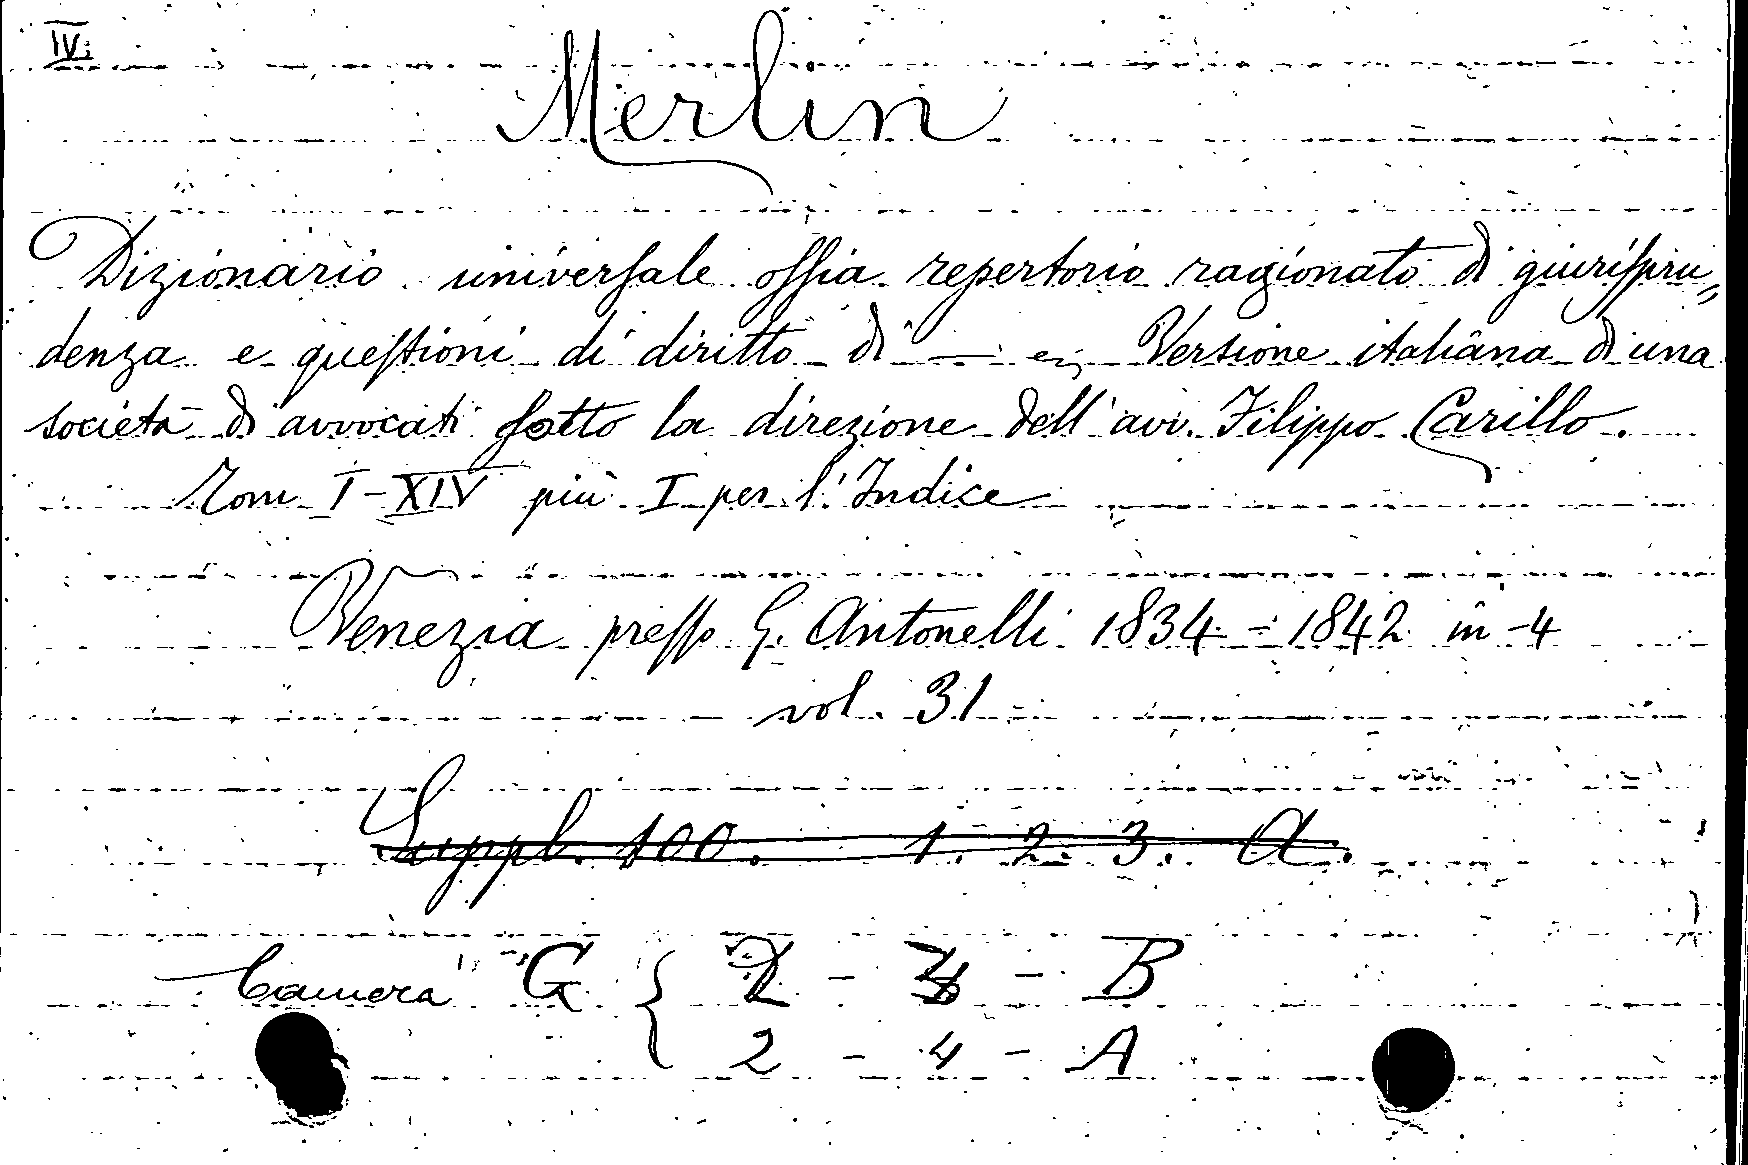 IV.
Merlin
Dizionario universale ossia repertorio ragionato di giurispru„
denza e questioni di diritto di — Versione italiana di una
società di avvocati sotto la direzione dell'avv. Filippo Carillo.
Tom I-XIV più I per l'Indice
Venezia presso G. Antonelli 1834-1842 in-4
vol. 31
Suppl. 100. 1. 2. 3. A.
Camera G { 2 - - B
2 - 4 - A